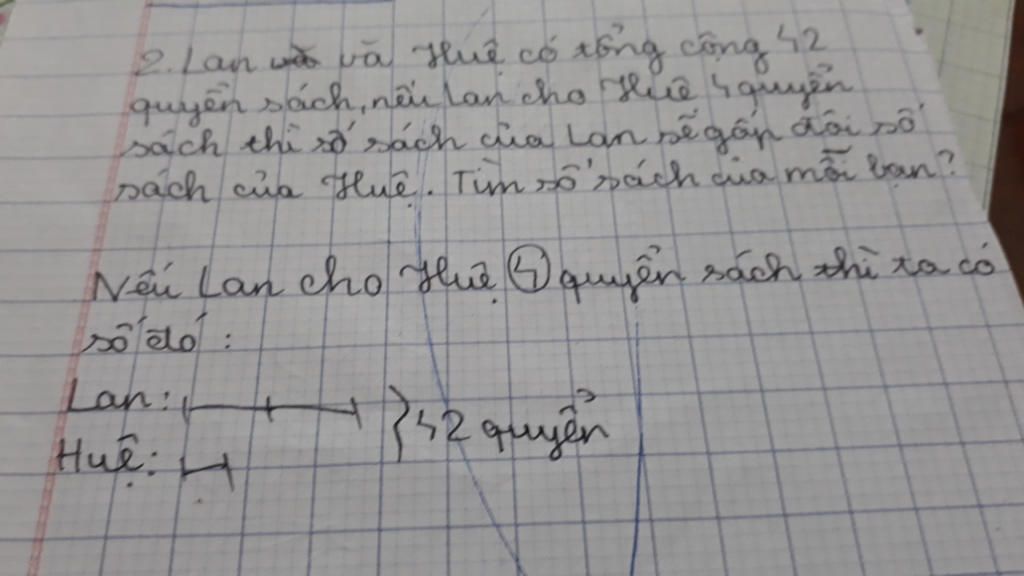 2. Lan và Huệ có tổng cộng 42
quyển sách, nếu Lan cho Huệ 4 quyển
sách thì số sách của Lan sẽ gấp đôi số
sách của Huệ. Tìm số sách của mỗi bạn?
Nếu Lan cho Huệ 4 quyển sách thì ta có
số đó:
Lan: } 42 quyển
Huệ: